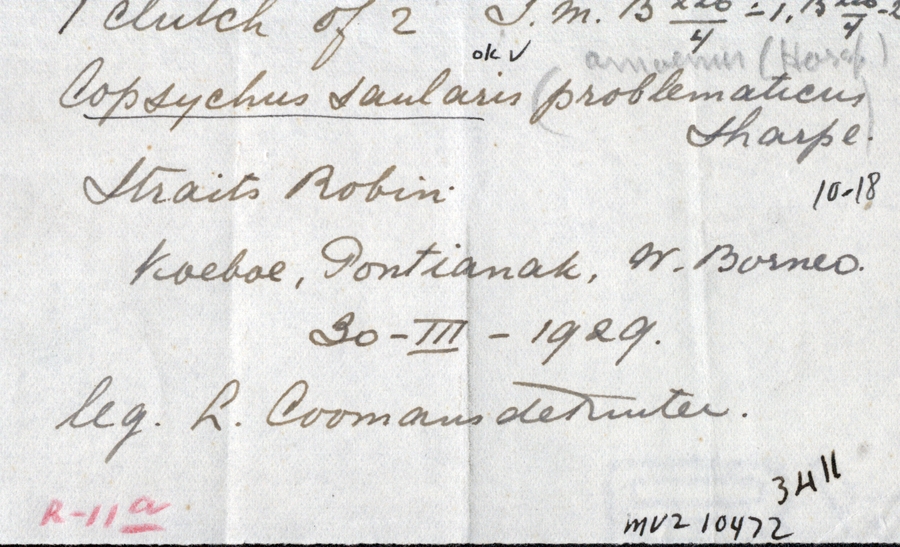 1 clutch of 2 J. M. B 220/4 - 1, B 220/4 - 2
ok √
amoenus (Horsf)
Copsychus saularis (problematicus)
Sharpe.
Straits Robin
10-18
Koeboe, Pontianak, W. Borneo.
30-III-1929.
leg. L. Coomans de Ruiter.
3411
R-11a
MVZ 10472